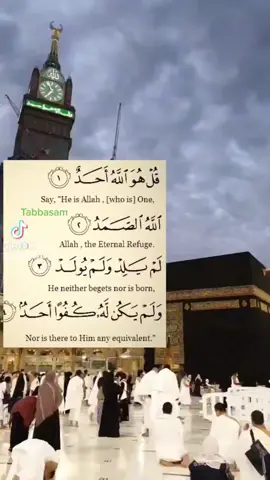 قُلْ هُوَ ٱللَّهُ أَحَدٌ ١
Say, "He is Allah , [who is] One,
Tabbasam
ٱللَّهُ ٱلصَّمَدُ ٢
Allah , the Eternal Refuge.
لَمْ يَلِدْ وَلَمْ يُولَدْ ٣
He neither begets nor is born,
وَلَمْ يَكُن لَّهُۥ كُفُوًا أَحَدٌۢ
Nor is there to Him any equivalent."